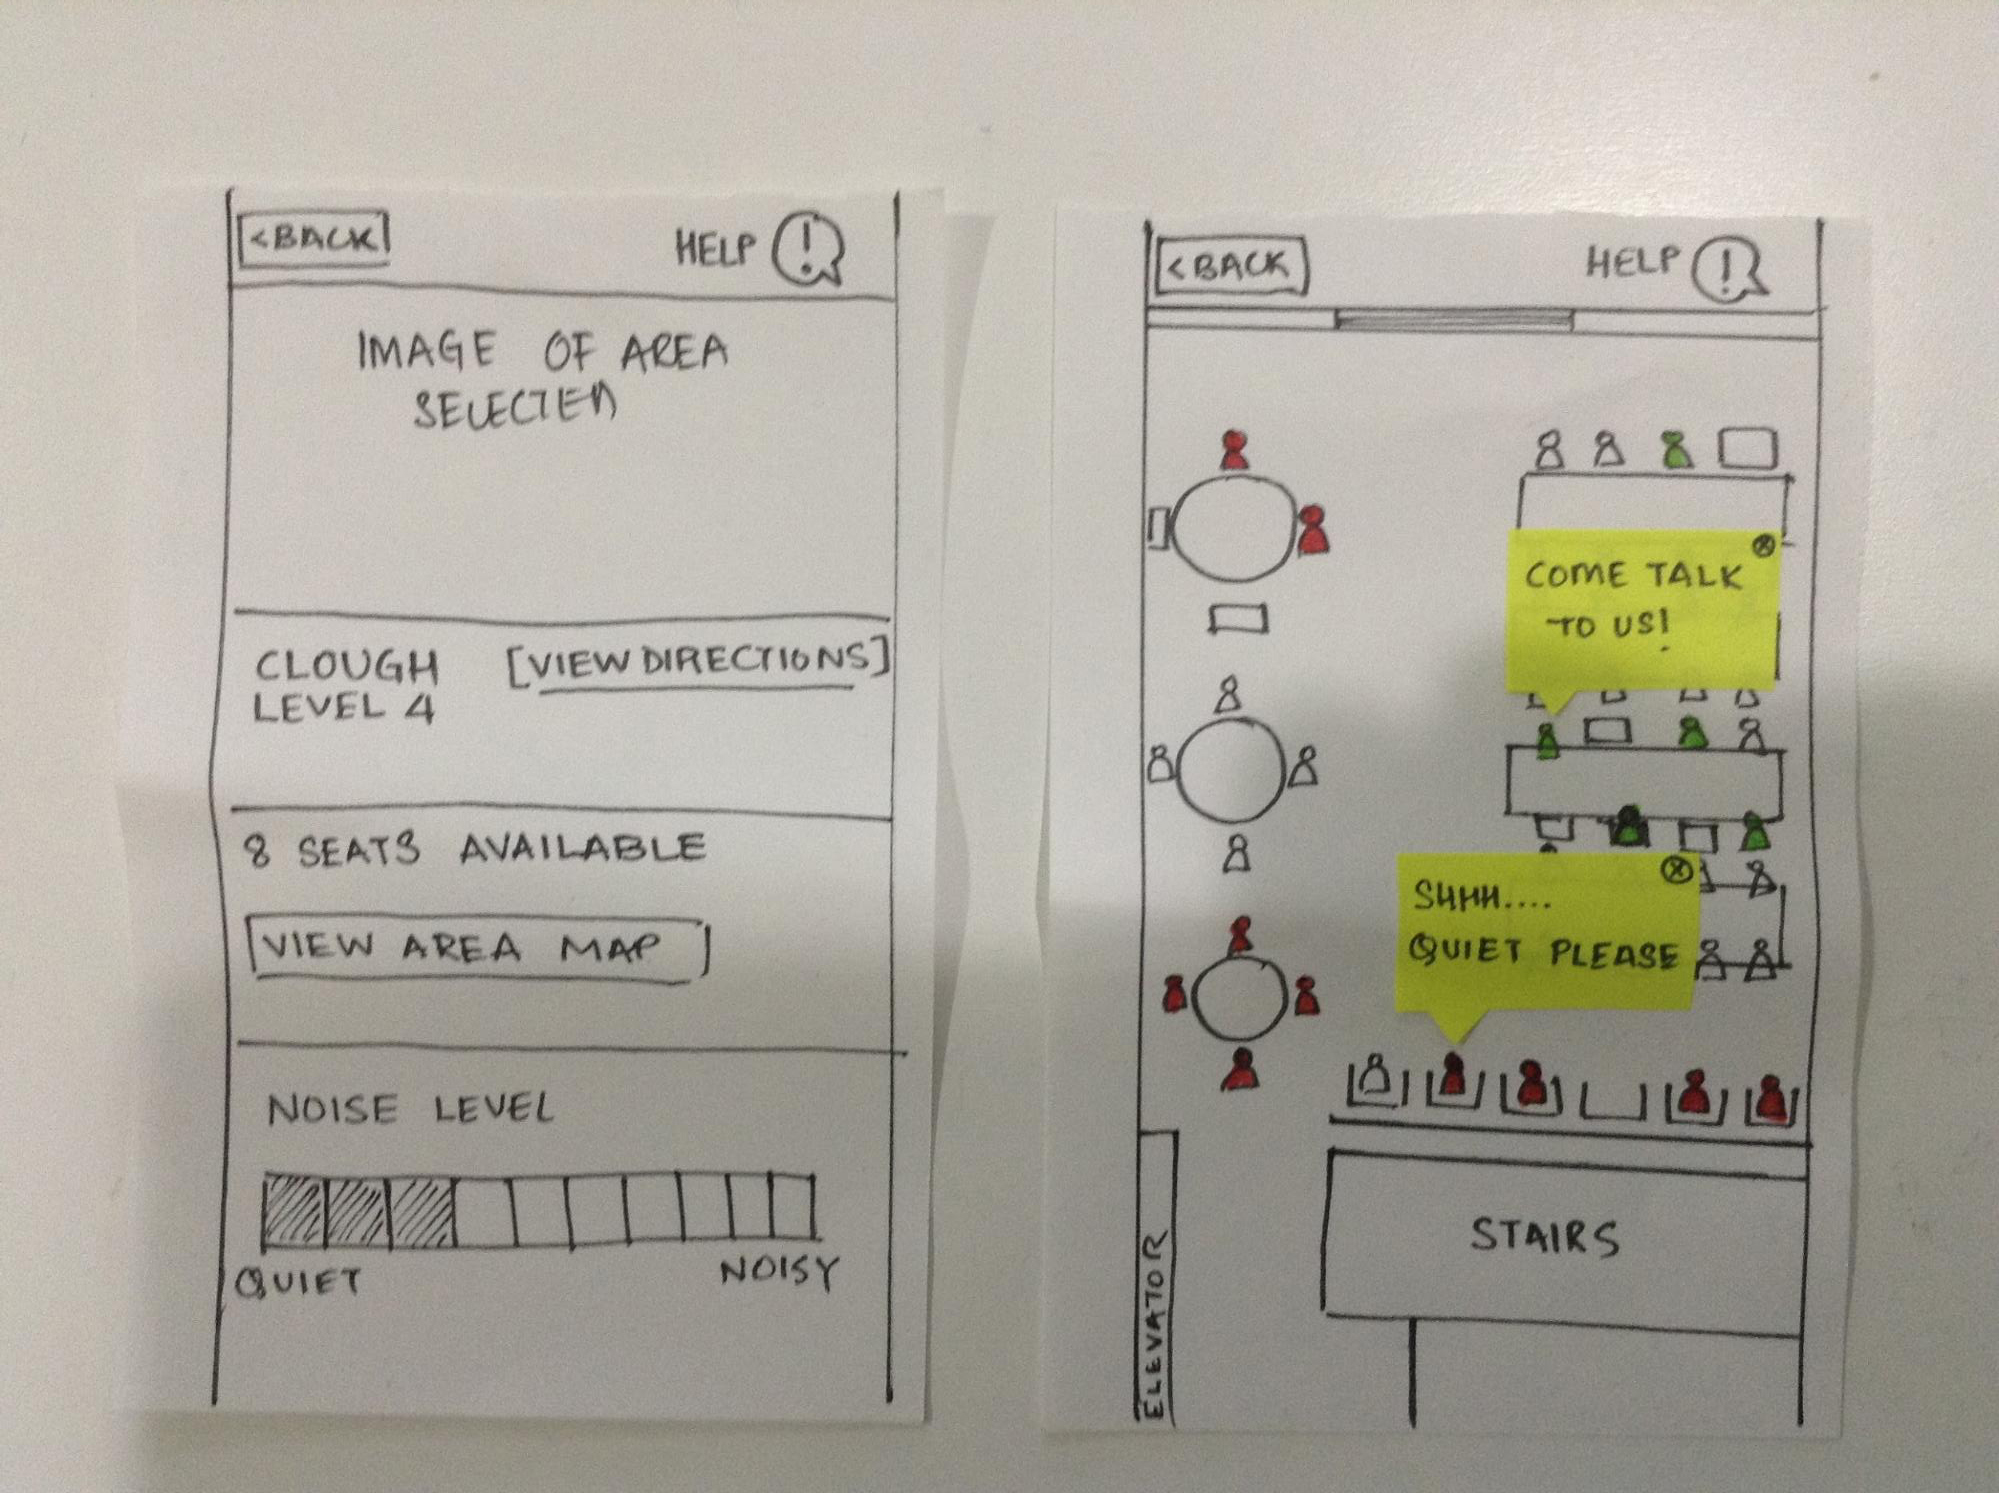 <BACK
HELP !
IMAGE OF AREA
SELECTED
CLOUGH [VIEW DIRECTIONS]
LEVEL 4
8 SEATS AVAILABLE
VIEW AREA MAP
NOISE LEVEL
QUIET NOISY
<BACK
HELP !
COME TALK
TO US!
SHHH....
QUIET PLEASE
STAIRS
ELEVATOR